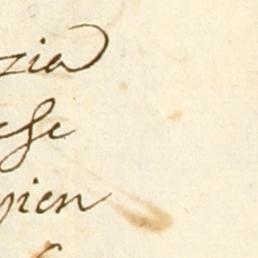 zia
ese
pien